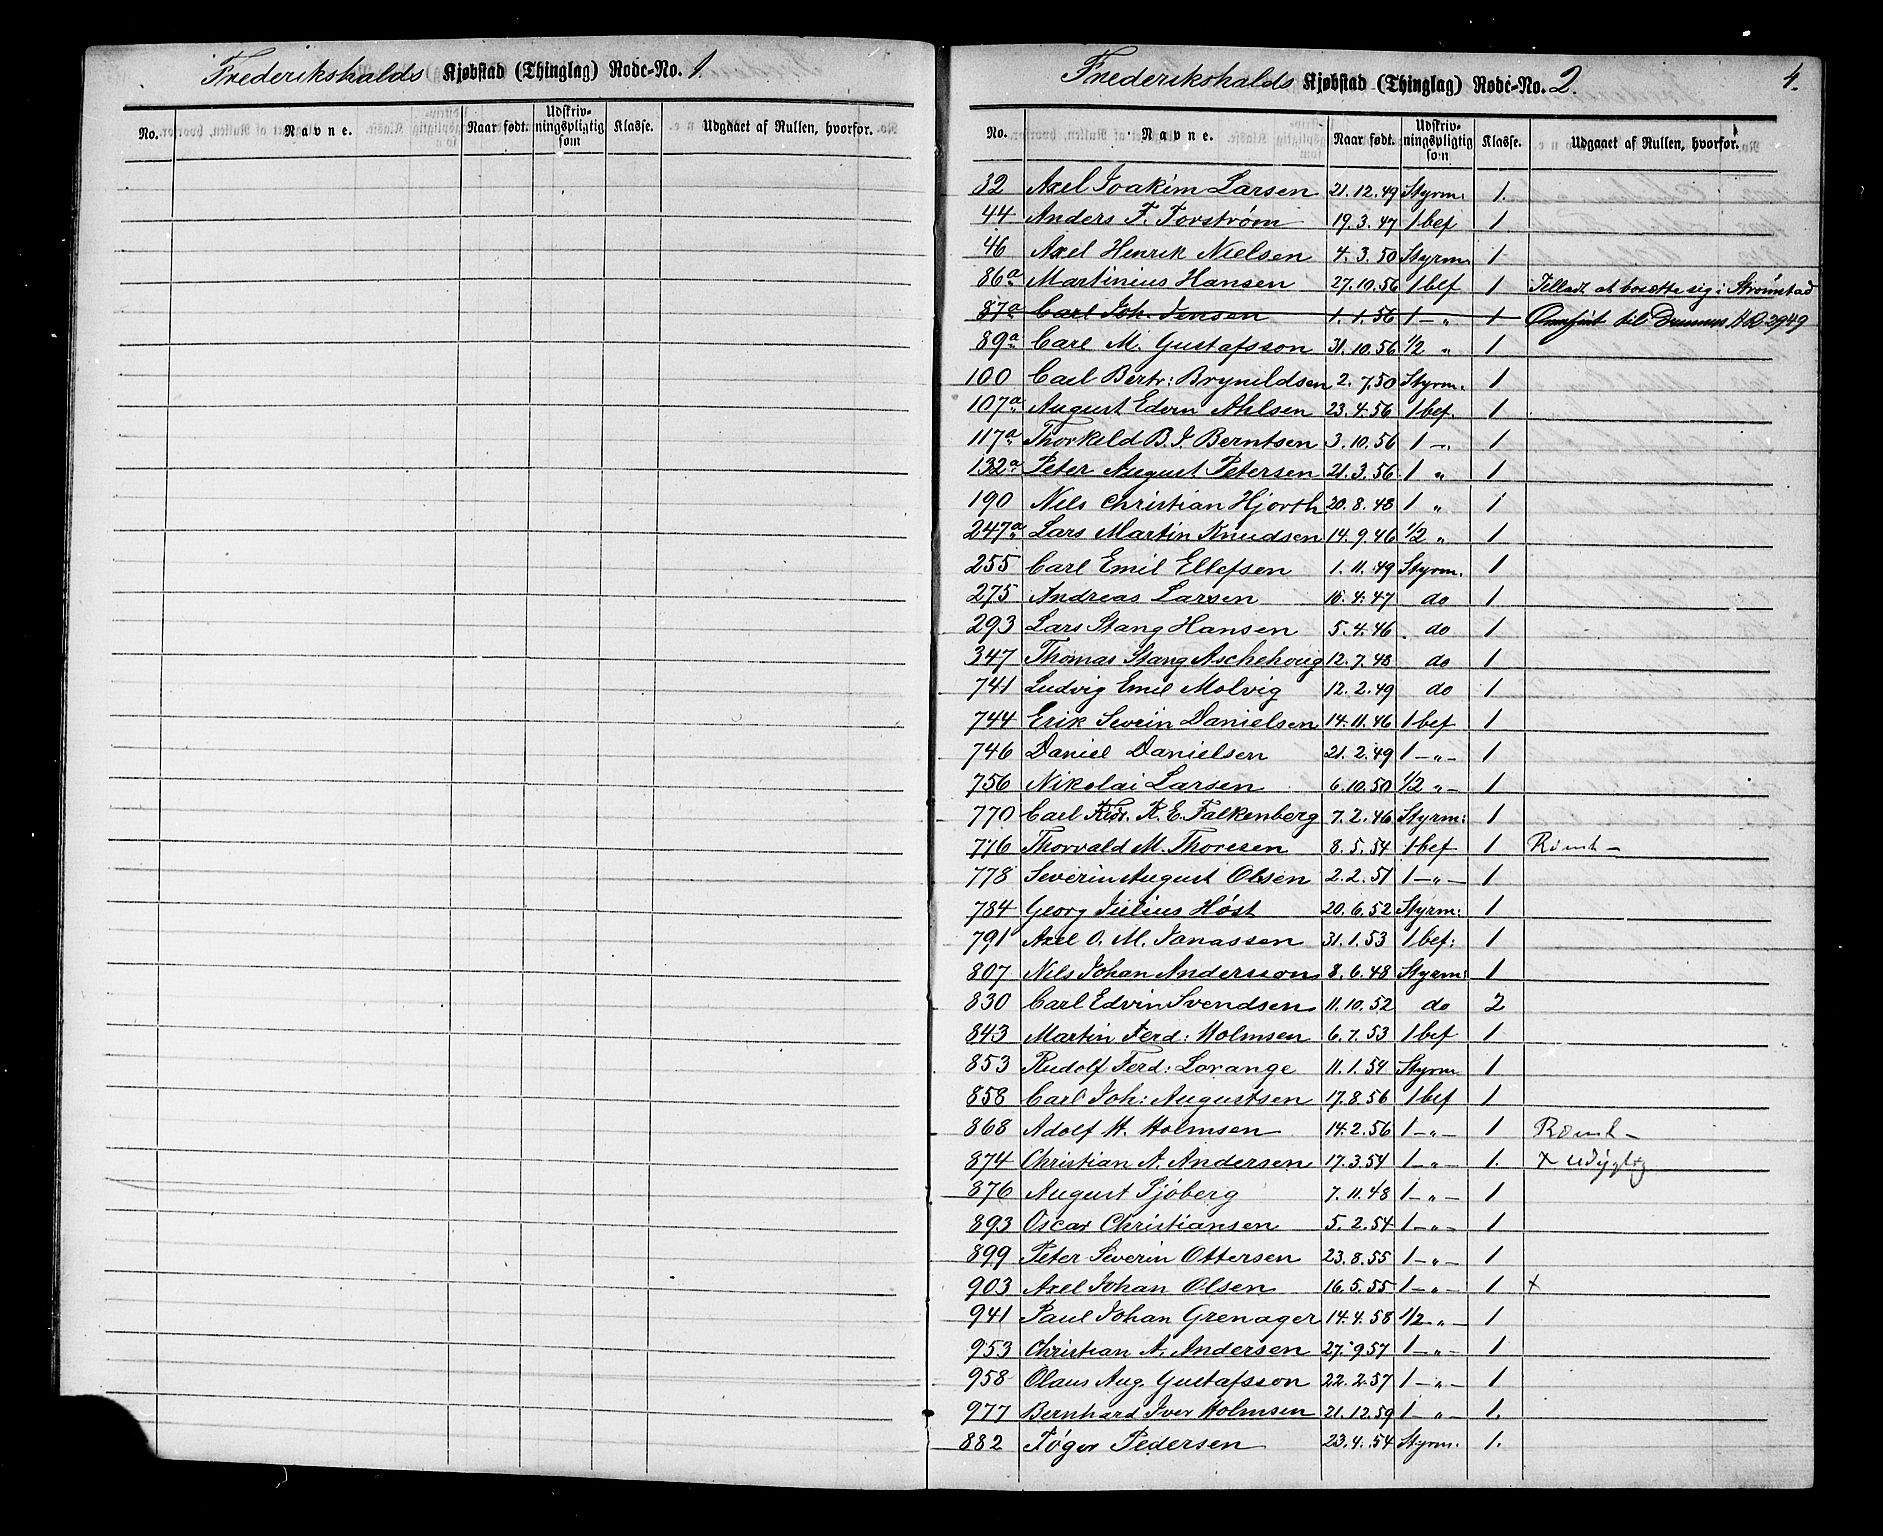 Frederikshalds Kjøbstad (Thinglag) Rode-No. 1.
No. Navne. Naar født. Udskriv-ningspligtig som Klasse. Udgaaet af Rullen, hvorfor.
Frederikshalds Kjøbstad (Thinglag) Rode-No. 2. 4.
No. Navne. Naar født. Udskriv-ningspligtig som Klasse. Udgaaet af Rullen, hvorfor.
32 Axel Joakim Larsen 21.12.49 Styrm. 1.
44 Anders F. Forstrøm 19.3.47 1 bef 1
46 Axel Henrik Nielsen 4.3.50 Styrm. 1
86a Martinius Hansen 27.10.56 1 bef 1 Tilladt at bosætte sig i Strømstad
87a Carl Joh. Jensen 1.1.56 1 - " 1 til A.R. 2949
89a Carl M. Gustafsson 31.10.56 1/2 " 1
100 Carl Bertr: Brynildsen 2.7.50 Styrm. 1
107a August Edvin Ahlsen 23.4.56 1 bef. 1
117a Thorkild B. J. Berntsen 3.10.56 1 - " 1
132a Peter August Petersen 21.3.56 1 " 1
190 Nils Christian Hjorth 20.8.48 1 " 1
247a Lars Martin Knudsen 14.9.46 1/2 " 1
255 Carl Emil Ellefsen 1.11.49 Styrm. 1
275 Andreas Larsen 16.4.47 do 1
293 Lars Stang Hansen 5.4.46 do 1
347 Thomas Stang Aschehoug 12.7.48 do 1
741 Ludvig Emil Molvig 12.2.49 do 1
744 Erik Severin Danielsen 14.11.46 1 bef 1
746 Daniel Danielsen 21.2.49 1 - " - 1
756 Nikolai Larsen 6.10.50 1/2 " - 1
770 Carl Fredr. K. E. Falkenberg 7.2.46 Styrm: 1
776 Thorvald M. Thoresen 8.5.54 1 bef 1
778 Severin August Olsen 2.2.51 1 - " - 1
784 Georg Julius Høst 20.6.52 Styrm: 1
791 Axel O. M. Jonassen 31.1.53 1 bef: 1
807 Nils Johan Andersson 8.6.48 Styrm: 1
830 Carl Edvin Svendsen 11.10.52 do 2
843 Martin Ferd: Holmsen 6.7.53 1 bef 1
853 Rudolf Ferd: Lorange 11.1.54 Styrm 1
858 Carl Joh: Augustsen 17.8.56 1 bef 1
868 Adolf H. Holmsen 14.2.56 1 - " - 1
874 Christian A. Andersen 17.3.54 1 - " - 1. +
876 August Sjöberg 7.11.48 1 - " - 1
893 Oscar Christiansen 5.2.54 1 - " - 1
899 Peter Severin Ottersen 23.8.55 1 - " - 1
903 Axel Johan Olsen 16.5.55 1 - " - 1 +
941 Paul Johan Grenager 14.4.58 1/2 - " - 1
953 Christian A. Andersen 27.9.57 1 - " - 1
958 Olaus Aug. Gustafsson 22.2.57 1 - " - 1
977 Bernhard Iver Holmsen 21.12.59 1 - " - 1.
882 Føger Pedersen 23.4.54 Styrm. 1.